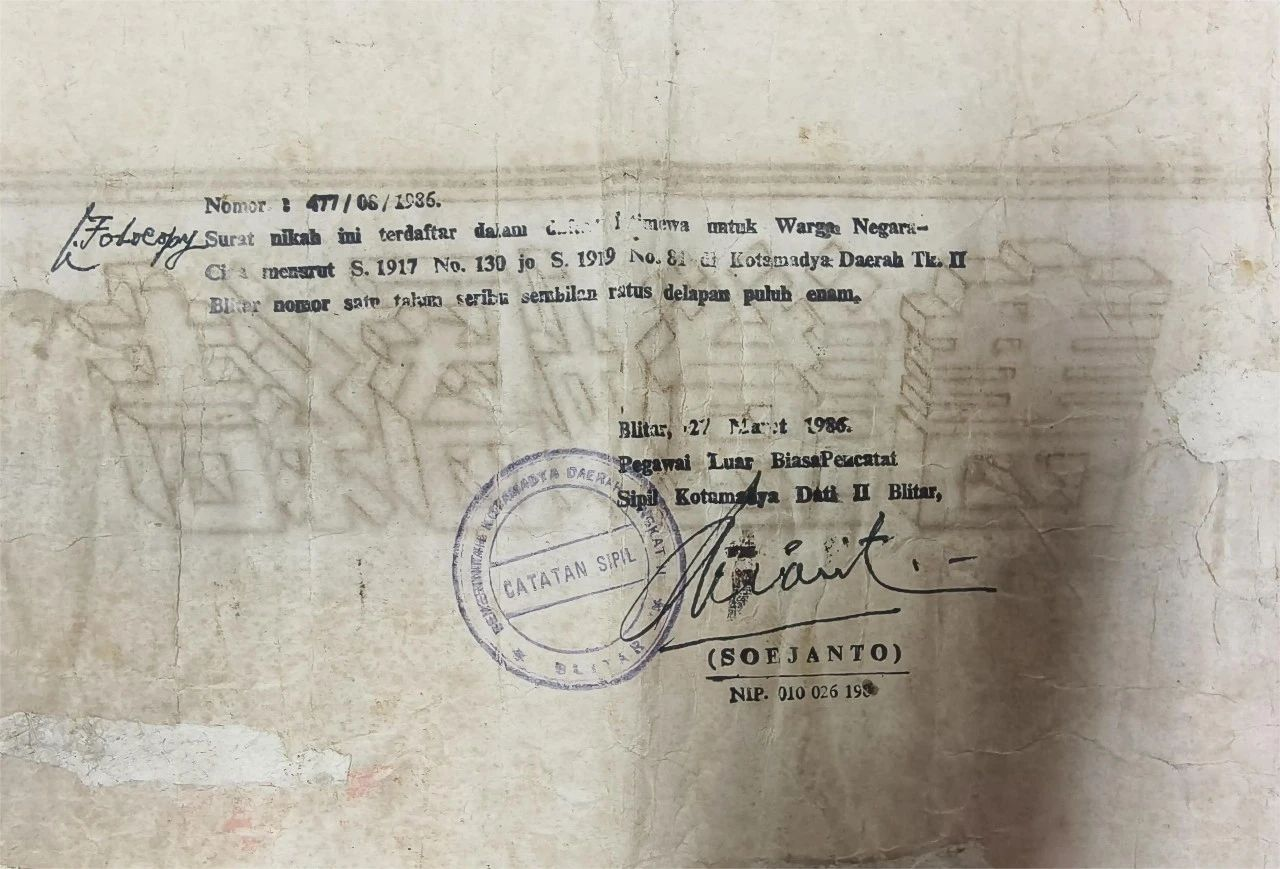 Nomor : 477/08/1986.
Fotocopy
Surat nikah ini terdaftar dalam untuk Warga Negara-
menurut S. 1917 No. 130 jo S. 1919 No. 81 di Kotamadya Daerah Tk. II
Blitar nomor satu seribu sembilan ratus delapan puluh enam.
Blitar, 27 Maret 1986.
Pegawai Luar BiasaPencatat
Sipil Kotamadya Dati II Blitar,
KOTAMADYA DAERAH
CATATAN SIPIL
* BLITAR *
(SOEJANTO)
NIP. 010 026